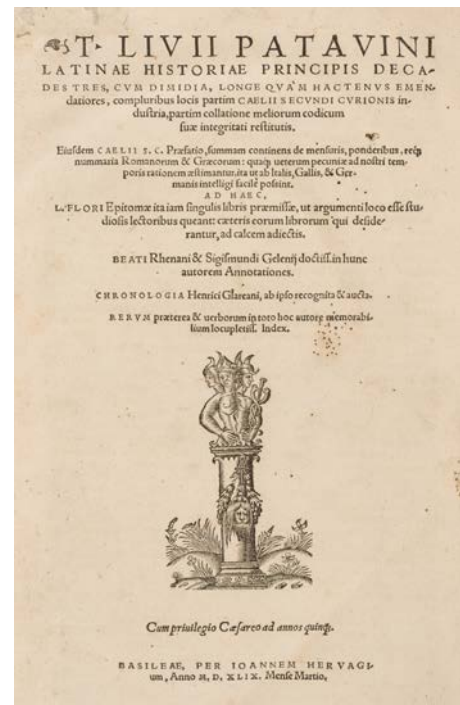 T. LIVII PATAVINI
LATINAE HISTORIAE PRINCIPIS DECA-
DES TRES, CVM DIMIDIA, LONGE QVA'M HACTENVS EMEN-
datiores, compluribus locis partim CAELII SECVNDI CVRIONIS in-
dustria, partim collatione meliorum codicum
suæ integritati restitutis.
Eiusdem CAELII S. C. Præfatio, summam continens de mensuris, ponderibus, reiq;
nummaria Romanorum & Græcorum: quaq; ueterum pecuniæ ad nostri tem-
poris rationem æstimantur, ita ut ab Italis, Gallis, & Ger-
manis intelligi facilè possint.
AD HAEC,
L. FLORI Epitomæ ita iam singulis libris præmissæ, ut argumenti loco esse stu-
diosis lectoribus queant: cæteris eorum librorum qui deside-
rantur, ad calcem adiectis.
BEATI Rhenani & Sigismundi Gelenij doctiss. in hunc
autorem Annotationes.
CHRONOLOGIA Henrici Glareani, ab ipso recognita & aucta.
RERVM præterea & uerborum in toto hoc autore memorabi-
lium locupletiss. Index.
Cum priuilegio Cæsareo ad annos quinq;.
BASILEAE, PER IOANNEM HERVAGI-
um, Anno M. D. XLIX. Mense Martio.